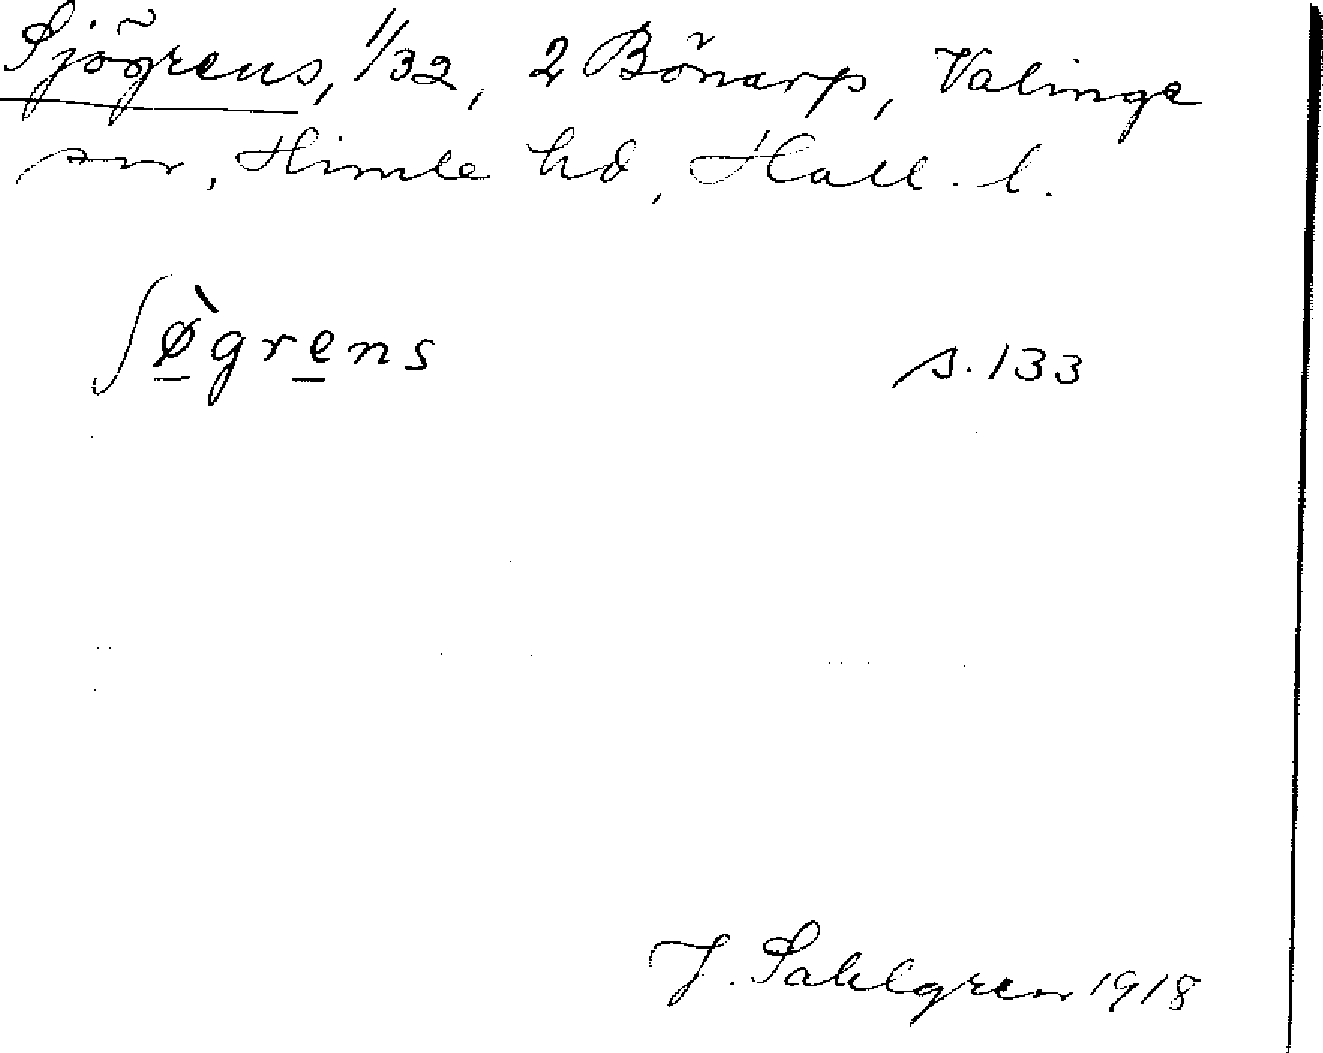 Sjögrens, 1/32, 2 Bönarp, Valinge
sn, Himle hd, Hall. l.
ʃø̀grens s. 133
J. Sahlgren 1918